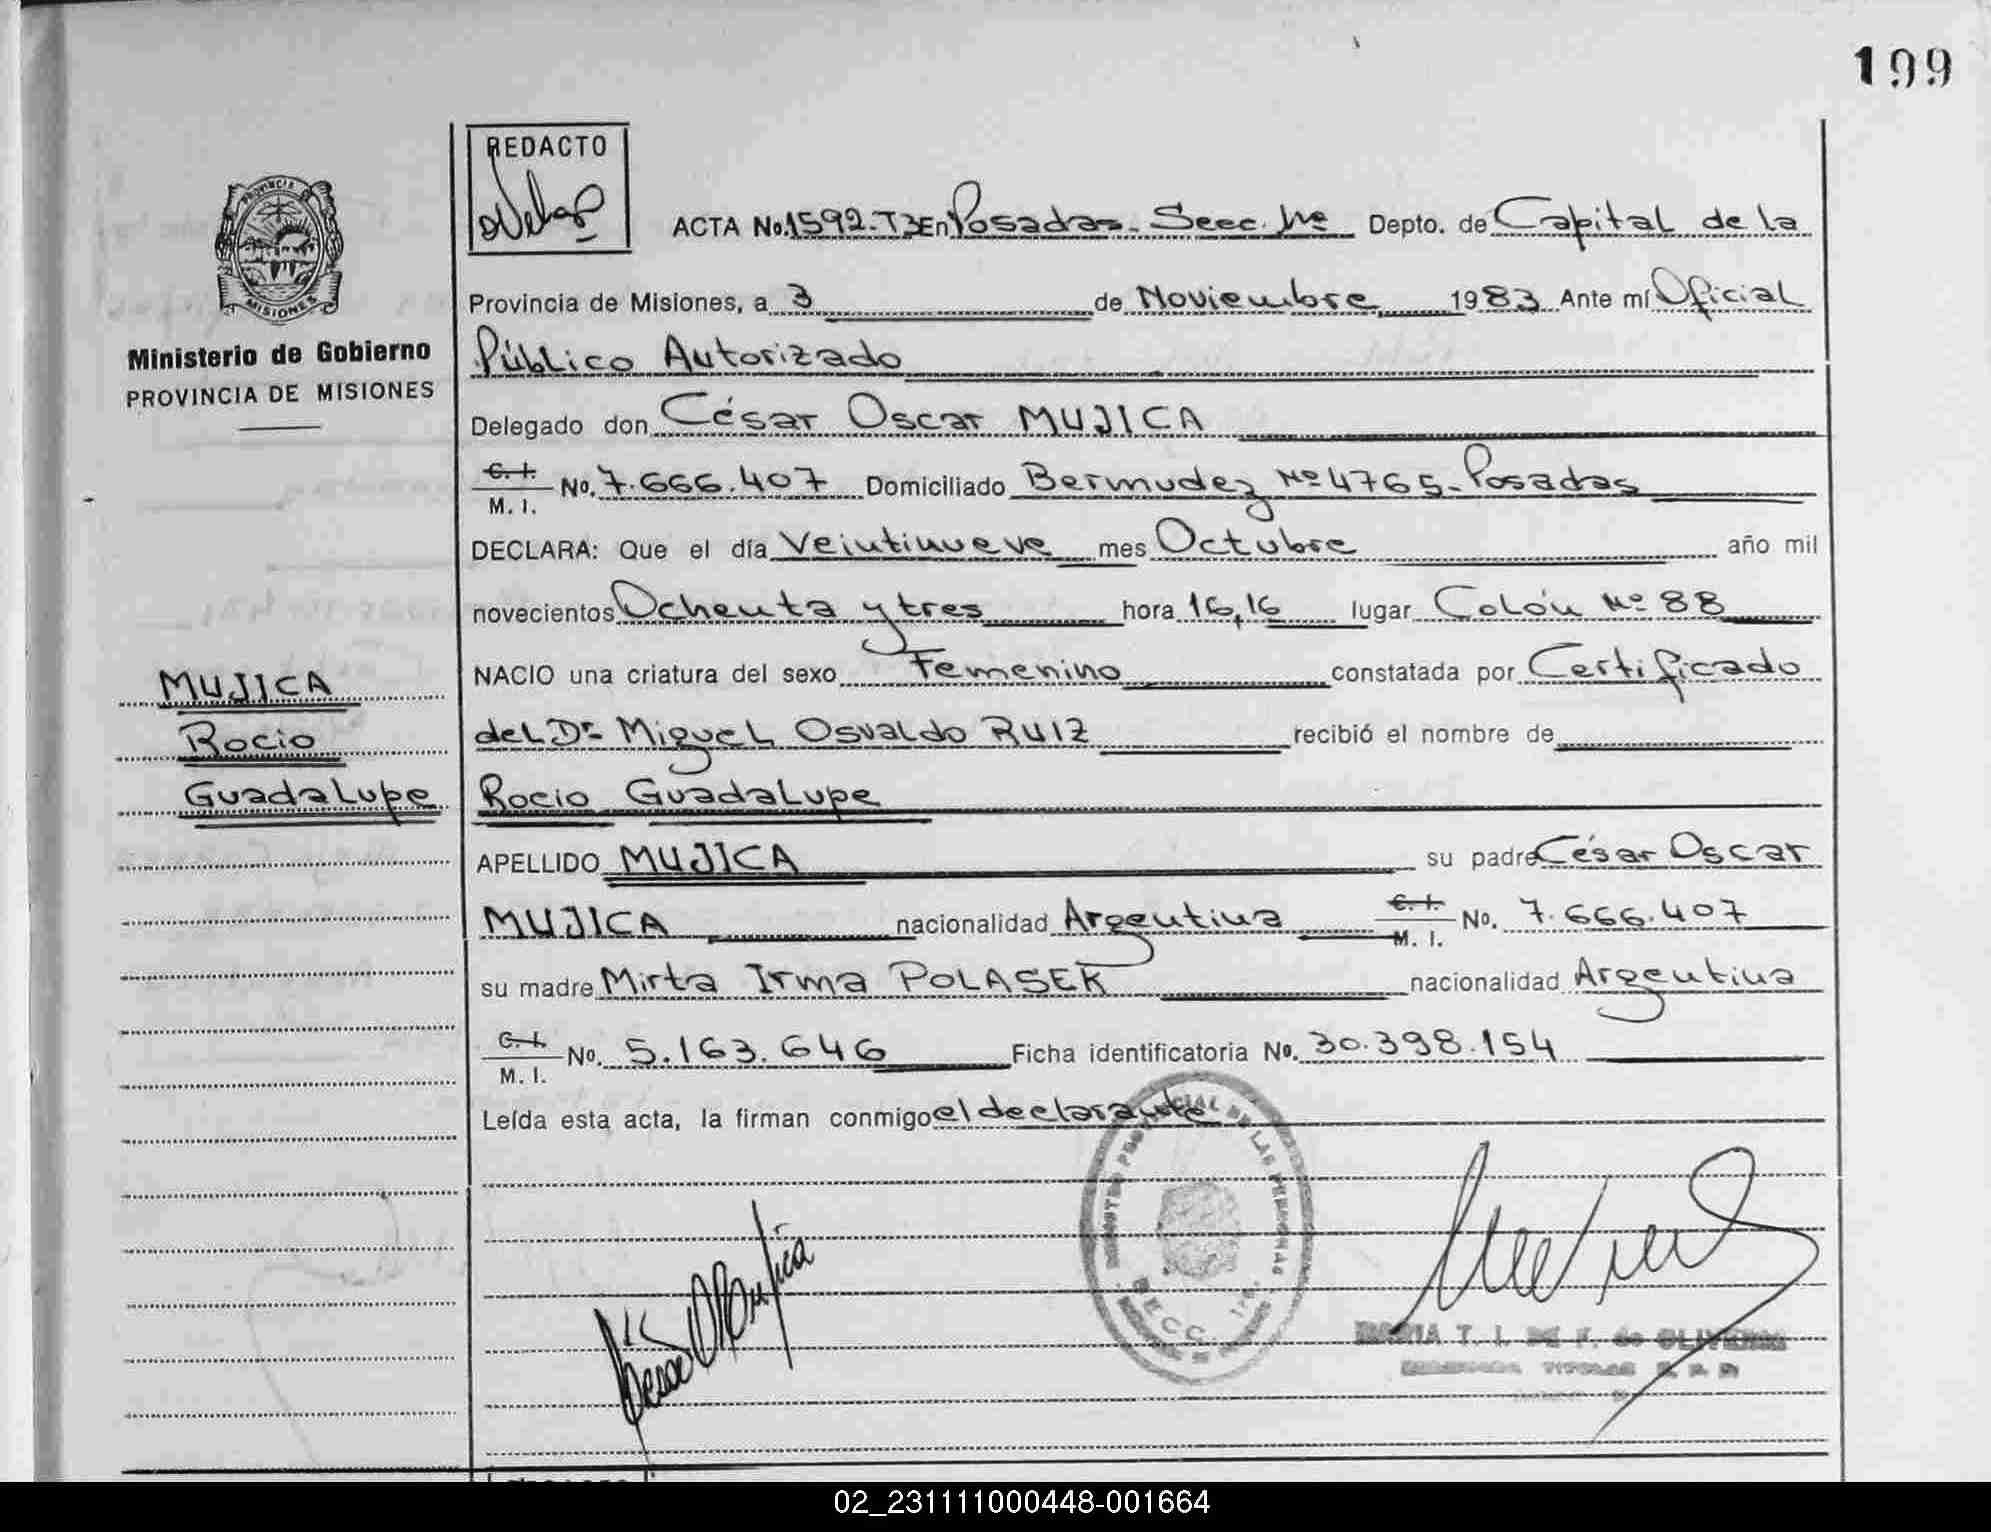 199
REDACTO
ACTA No. 1592-T3 En Posadas - Secc. 1ra Depto. de Capital de la
Provincia de Misiones, a 3 de Noviembre 1983 Ante mí Oficial
Público Autorizado
Delegado don César Oscar MUJICA
C. I. M. I. No. 7.666.407 Domiciliado Bermudez Nº 4765 - Posadas
DECLARA: Que el día Veintinueve mes Octubre año mil
novecientos Ochenta y tres hora 16,16 lugar Colón Nº 88
NACIO una criatura del sexo Femenino constatada por Certificado
del Dr. Miguel Osvaldo RUIZ recibió el nombre de
Rocio Guadalupe
APELLIDO MUJICA su padre César Oscar
MUJICA nacionalidad Argentina C. I. M. I. No. 7.666.407
su madre Mirta Irma POLASEK nacionalidad Argentina
C. I. M. I. No. 5.163.646 Ficha identificatoria No. 30.398.154
Leída esta acta, la firman conmigo el declarante
MISIONES
Ministerio de Gobierno
PROVINCIA DE MISIONES
MUJICA
Rocio
Guadalupe
DE LAS PERSONAS
T. I. DE F. de OLIVEIRA
02_231111000448-001664